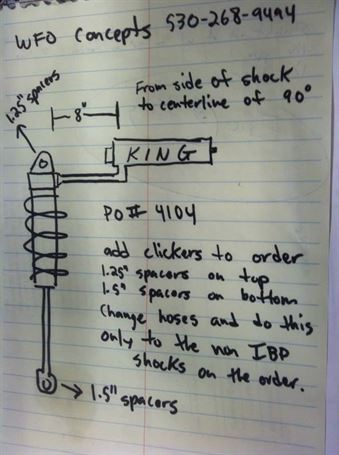 WFO Concepts 530-268-9494
1.25" spacers
8"
From side of shock
to centerline of 90°
KING
PO# 4104
add clickers to order
1.25" spacors on top
1.5" spacors on bottom
Change hoses and do this
only to the non IBP
shocks on the order.
1.5" spacors